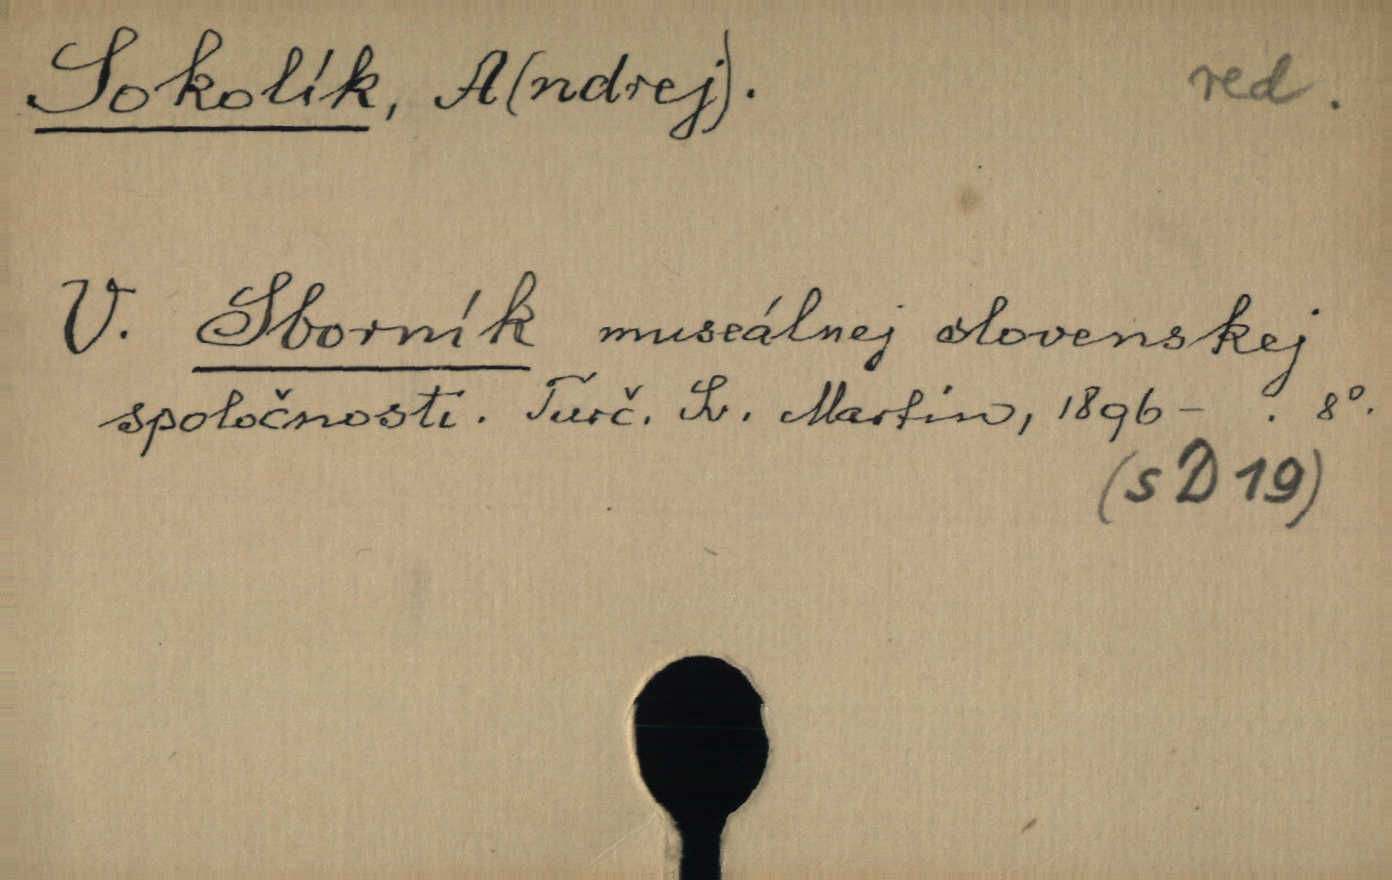 Sokolík, A(ndrej). red.
V. Sborník museálnej slovenskej
spoločnosti. Turč. Sv. Martin, 1896- . 8°.
(s D 19)